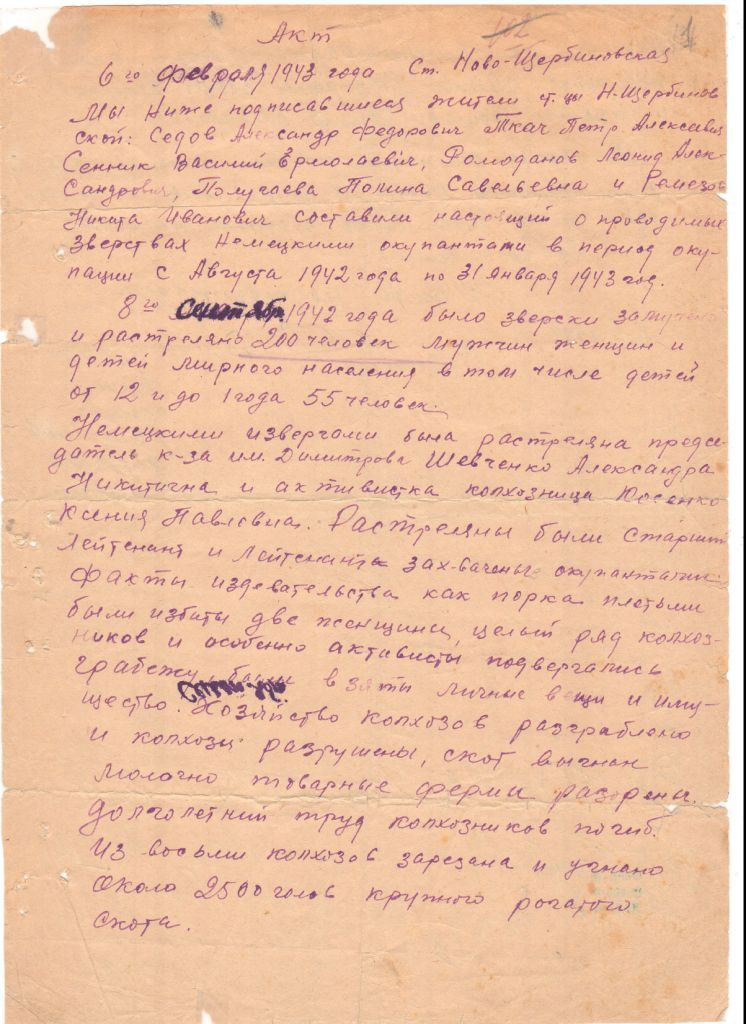 102 1
Акт
6го февраля 1943 года Ст. Ново-Щербиновская
Мы ниже подписавшиеся жители ст.цы Н-Щербинов
ской: Седов Александр Федорович Ткач Петр Алексеевич
Сенник Василий Ермолаевич, Ромоданов Леонид Алек-
сандрович, Получаева Полина Савельевна и Ремезов
Никита Иванович составили настоящий о проводимых
зверствах Немецкими окупантами в период оку-
пации с Августа 1942 года по 31 января 1943 год.
8го Сентябр. 1942 года было зверски замучено
и растреляно 200 человек мужчин женщин и
детей мирного населения в том числе детей
от 12 и до 1 года 55 человек.
Немецкими извергами была растреляна предсе-
датель к-за им. Димитрова Шевченко Александра
Никитична и активистка колхозница
Ксения Павловна. Растреляны были старший
лейтенант и лейтенанта зах-вачены окупантами.
Факты издевательства как порка плетьми
были избиты две женщины, целый ряд колхоз-
ников и особенно активисты подвергались
грабежу, были взяты личные вещи и иму-
щество. Хозяйство колхозов разграблено
и колхозы разрушены, скот выгнан
молочно товарные фермы разорены.
Долголетний труд колхозников погиб.
Из восьми колхозов зарезана и угнано
около 2500 голов крупного рогатого
скота.